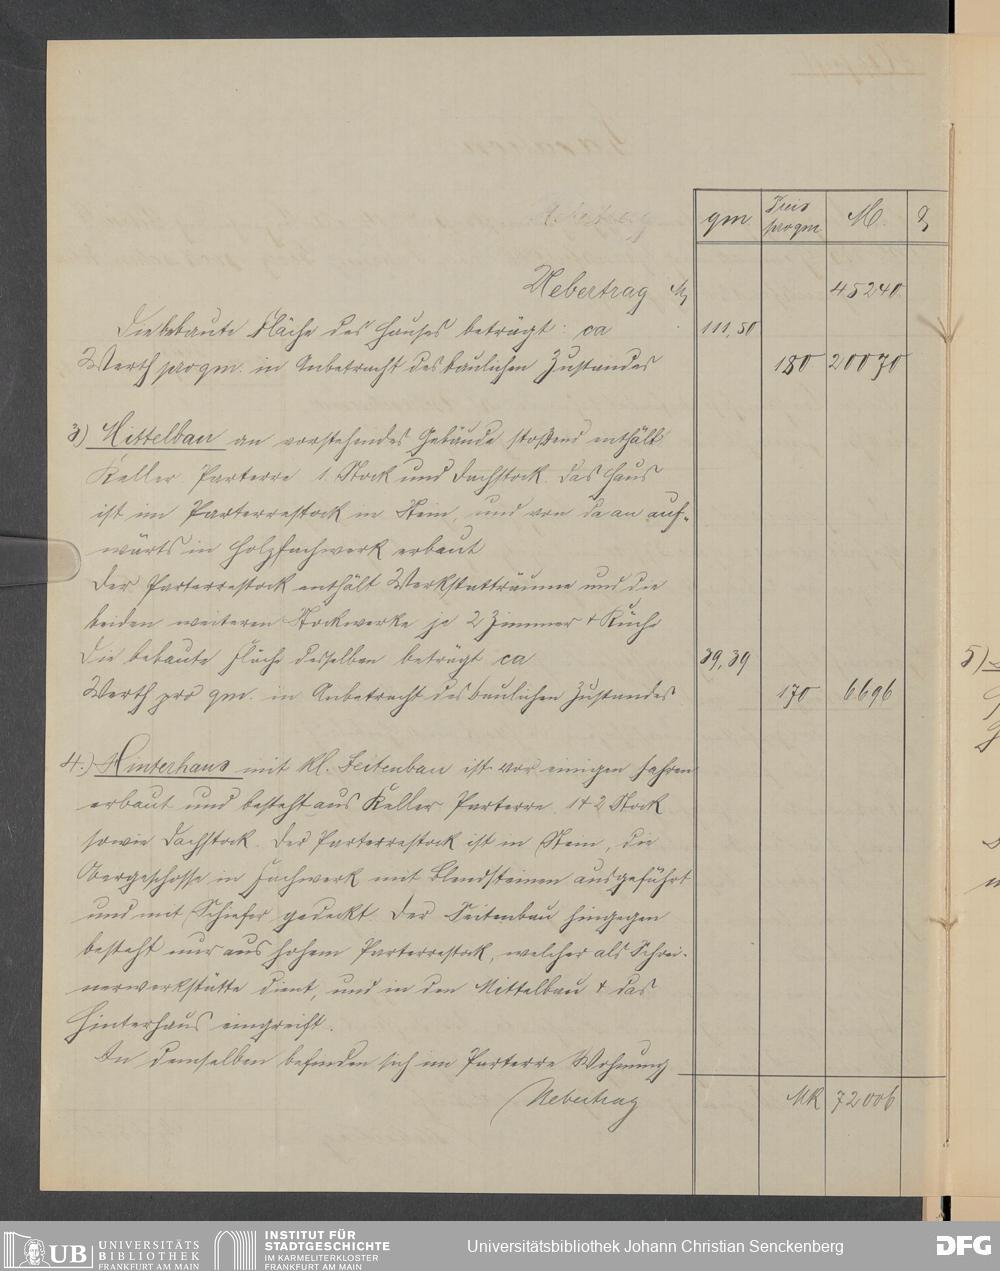 qm Preis pro qm M. ₰
Uebertrag M 45240
Die bebaute Fläche des Hauses beträgt: ca 111,50
Werth pro qm. in Anbetracht des baulichen Zustandes 180 20070
3) Mittelbau an vorstehendes Gebäude stoßend enthält
Keller Parterre 1. Stock und Dachstock. Das Haus
ist im Parterrestock in Stein, und von da an auf-
wärts in Holzfachwerk erbaut
Der Parterrestock enthält Werkstatträume und die
beiden weiteren Stockwerke je 2 Zimmer + Küche
Die bebaute Fläche desselben beträgt ca 39,39
Werth pro qm. in Anbetracht des baulichen Zustandes 170 6696
4.) Hinterhaus mit kl. Seitenbau ist vor einigen Jahren
erbaut und besteht aus Keller Parterre 1 + 2 Stock
sowie Dachstock. Der Parterrestock ist in Stein, die
Obergeschosse in Fachwerk mit Blendsteinen ausgeführt
und mit Schiefer gedeckt. Der Seitenbau hingegen
besteht nur aus hohem Parterrestock, welcher als Schrei-
nerwerkstätte dient, und in den Mittelbau + das
Hinterhaus eingreift.
In demselben befinden sich im Parterre Wohnung
Uebertrag MK 72006
5)
UB UNIVERSITÄTS BIBLIOTHEK FRANKFURT AM MAIN
INSTITUT FÜR STADTGESCHICHTE IM KARMELITERKLOSTER FRANKFURT AM MAIN
Universitätsbibliothek Johann Christian Senckenberg
DFG